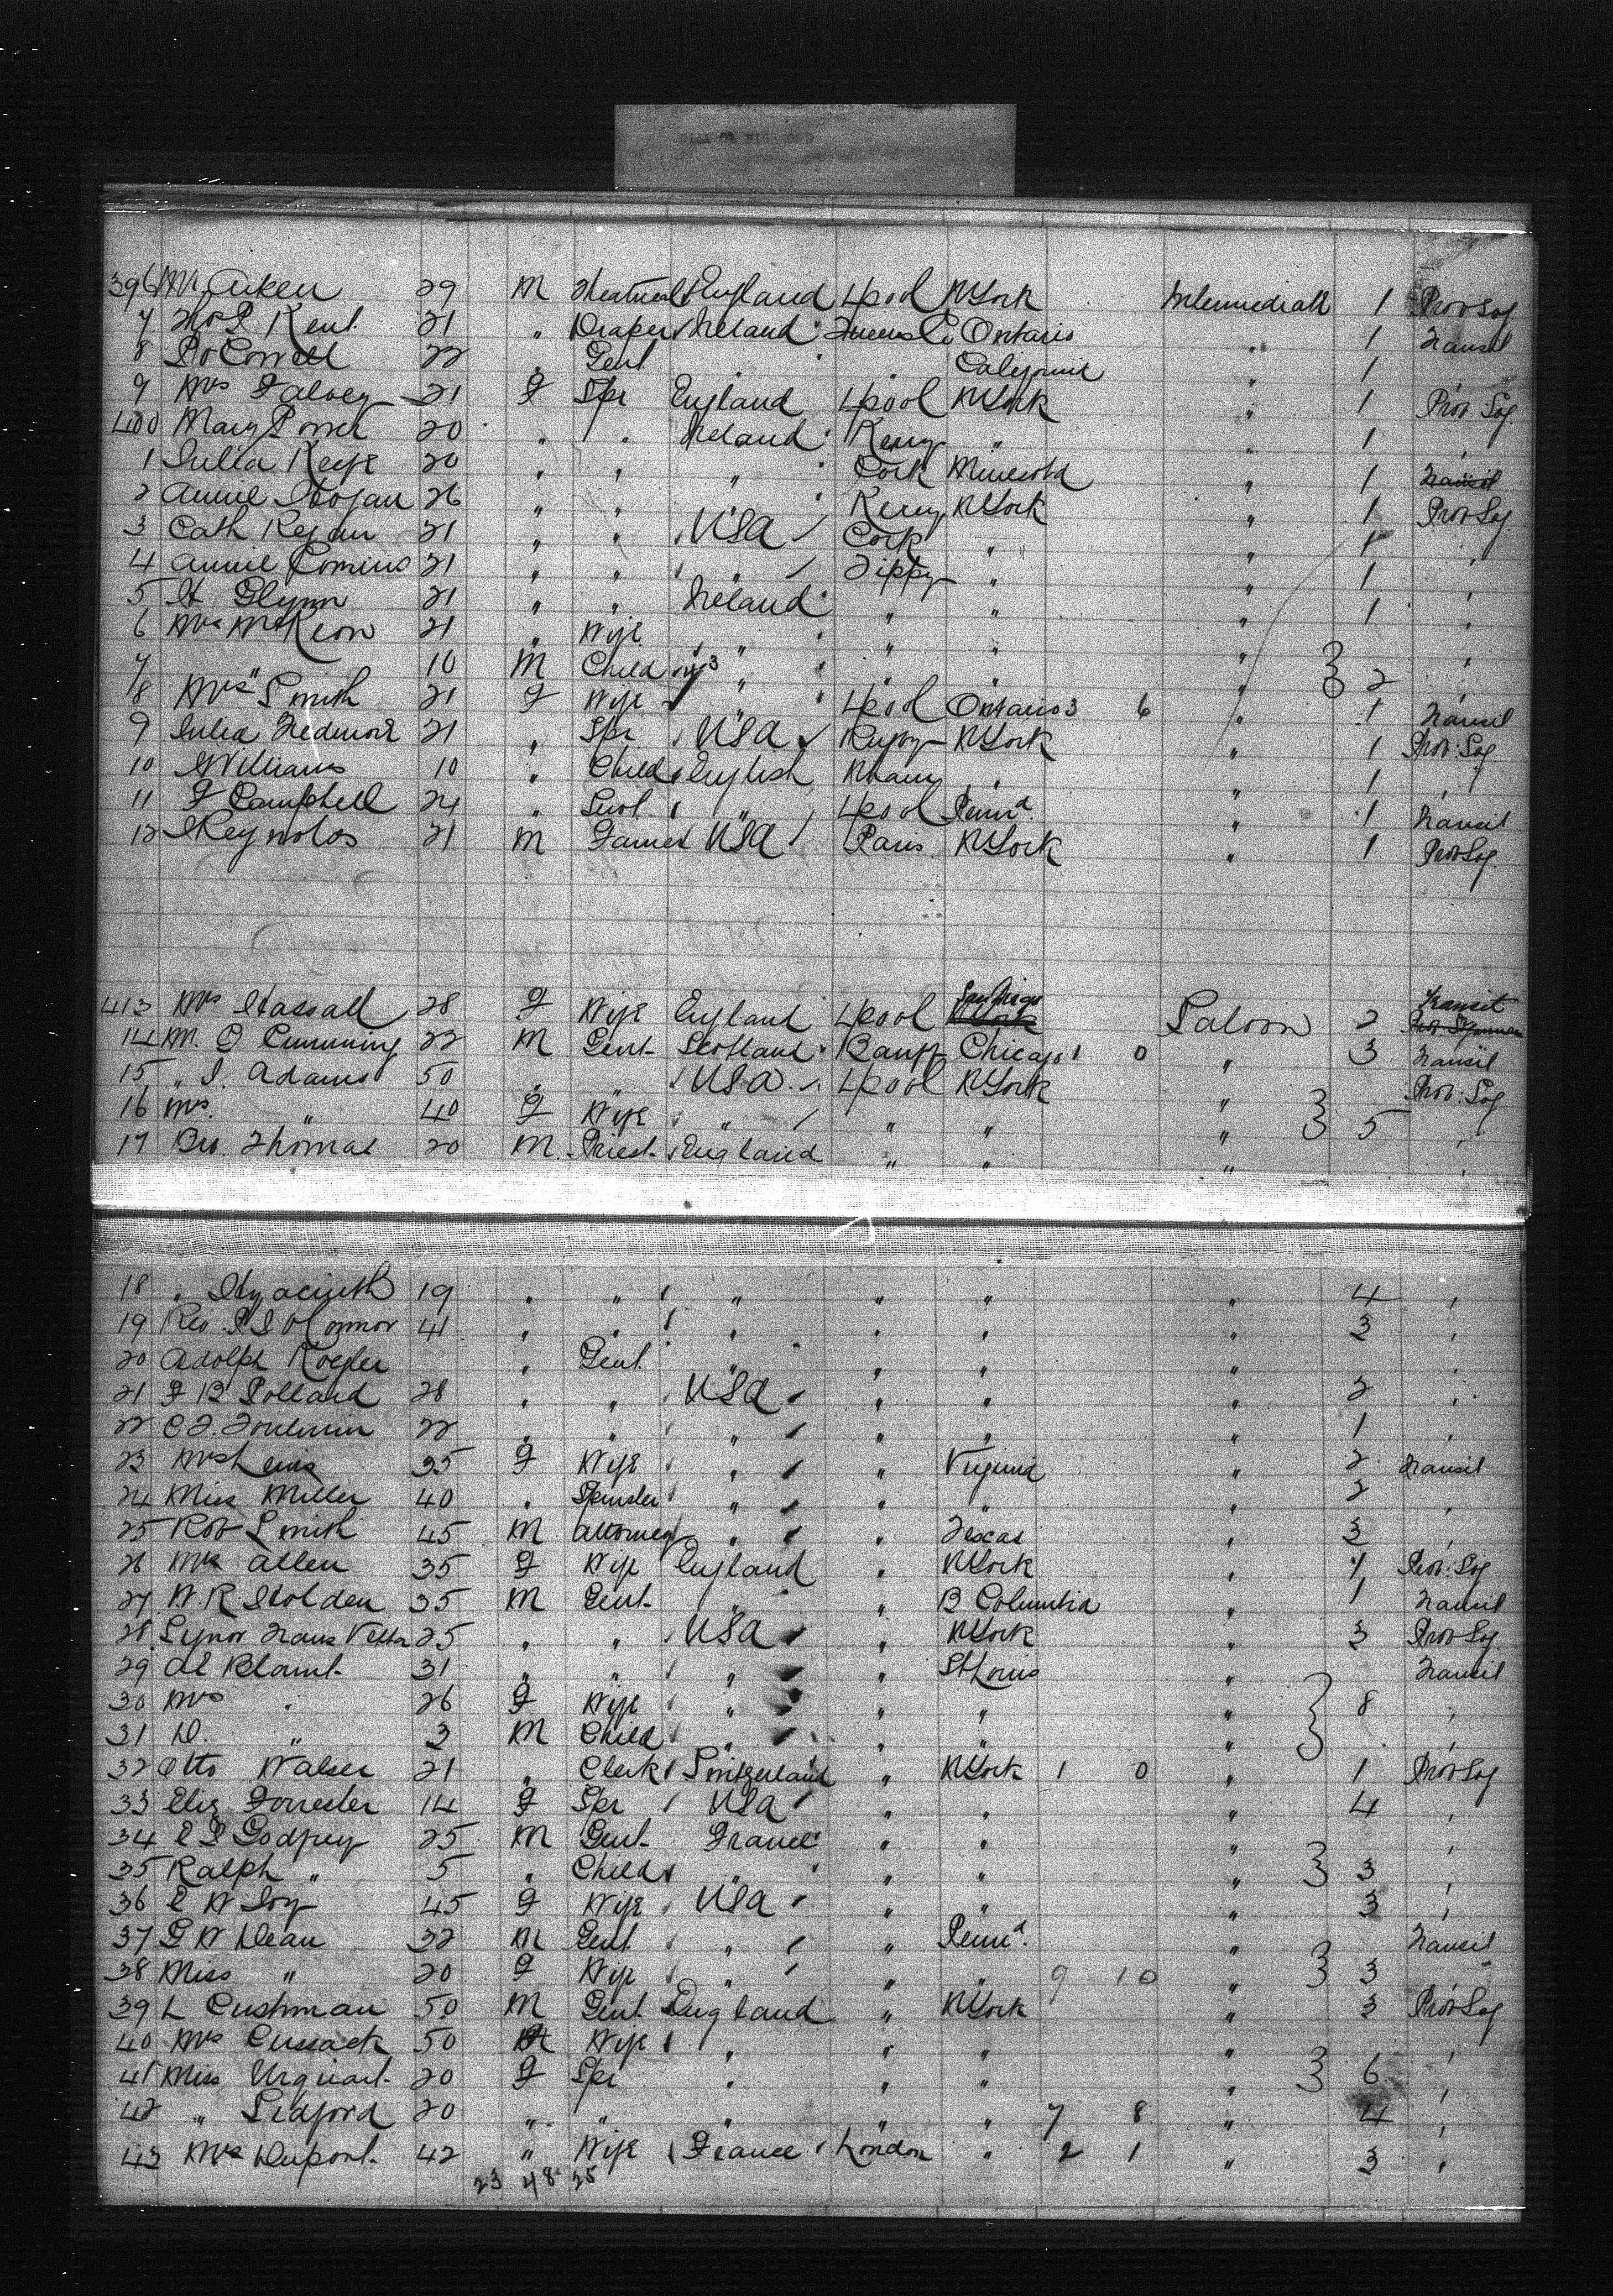 396 Mr. Aiken 29 M Theatrical England Lpool N York Intermediate 1 Prov Soj
7 Kent 21 " Draper Ireland Queens Ontario " 1 Transit
8 22 " Gent " California " 1 "
9 Mrs Falvey 21 F Spr England Lpool N York " 1 Prov Soj
400 Mary Power 20 " " Ireland Kerry " " 1 "
1 Julia Keefe 20 " " " Cork Minesota " 1 Transit
2 Annie Hogan 26 " " " Kerry N York " 1 Prov Soj
3 Cath Regan 21 " " USA Cork " " 1 "
4 Annie Comins 21 " " " Tippy " " 1 "
5 H Glynn 21 " " Ireland " " " 1 "
6 Mrs McKeon 21 " Wife " " " " "
7 " 10 M Child " " " " 2 "
8 Mrs Smith 21 F Wife " Lpool Ontario 3 6 " 1 Transit
9 Julia 21 " Spr USA N York " 1 Prov: Soj
10 Williams 10 " Child English " " 1 "
11 F Campbell 24 " " Lpool Penna " 1 Transit
12 Reynolds 21 M Farmer USA Paris N York " 1 Prov Soj
413 Mrs Hassall 28 F Wife England Lpool San Diego Saloon 2 Transit
14 M. G Cumming 22 M Gent Scotland Banff Chicago 1 0 " 3 Transit
15 " J. Adams 50 " " USA Lpool N York " Prov: Soj
16 Mrs. " 40 F Wife " " " " 5 "
17 Bro. Thomas 20 M Priest England " " " "
18 " Hyacinth 19 " " " " " " 4 "
19 Rev. P J O'Connor 41 " " " " " " 3 "
20 Adolph Koefler " Gent " " " " "
21 F B Pollard 28 " " USA " " " 2 "
22 C F. Toulmin 22 " " " " " " 1 "
23 Mrs Lewis 35 F Wife " " Virginia " 2 Transit
24 Miss Miller 40 " Spinster " " " " 2 "
25 Rob Smith 45 M Attorney " " Texas " 3 "
26 Mrs Allen 35 F Wife England " N York " Prov: Soj
27 W. R Holden 35 M Gent " " B Columbia " 1 Transit
28 Signor 25 " " USA " N York " 3 Prov Soj
29 31 " " " " St Louis " Transit
30 Mrs " 26 F Wife " " " " 8 "
31 D. " 3 M Child " " " " "
32 Otto Walser 21 " Clerk Switzerland " N York 1 0 " 1 Prov Soj
33 Eliz Forrester 14 F Spr USA " " " 4 "
34 E S Godfrey 25 M Gent France " " " "
35 Ralph " 5 " Child " " " " 3 "
36 E W Soy 45 F Wife USA " " " 3 "
37 G W Dean 32 M Gent " " Penna. " Transit
38 Miss " 20 F Wife " " " 9 10 " 3 "
39 L Cushman 50 M Gent England " N York " 3 Prov Soj
40 Mrs Cussack 50 F Wife " " " " "
41 Miss Urquart 20 F Spr " " " " 6 "
42 " Sedford 20 " " " " " 7 8 " 4 "
43 Mrs Dupont 42 " Wife France London " 2 1 " 3 "
23 48 25